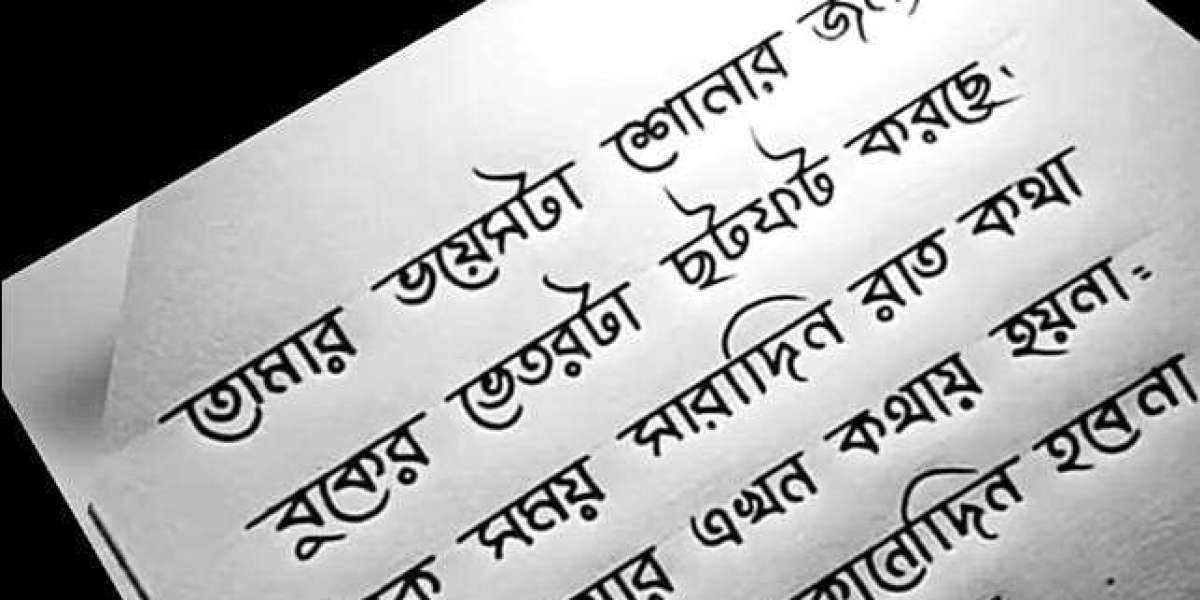 তোমার ভয়েসটা শোনার
বুকের ভেতরটা ছটফট করছে,
সময় সারাদিন রাত কথা
এখন কথায় হয়না:
হবেনা